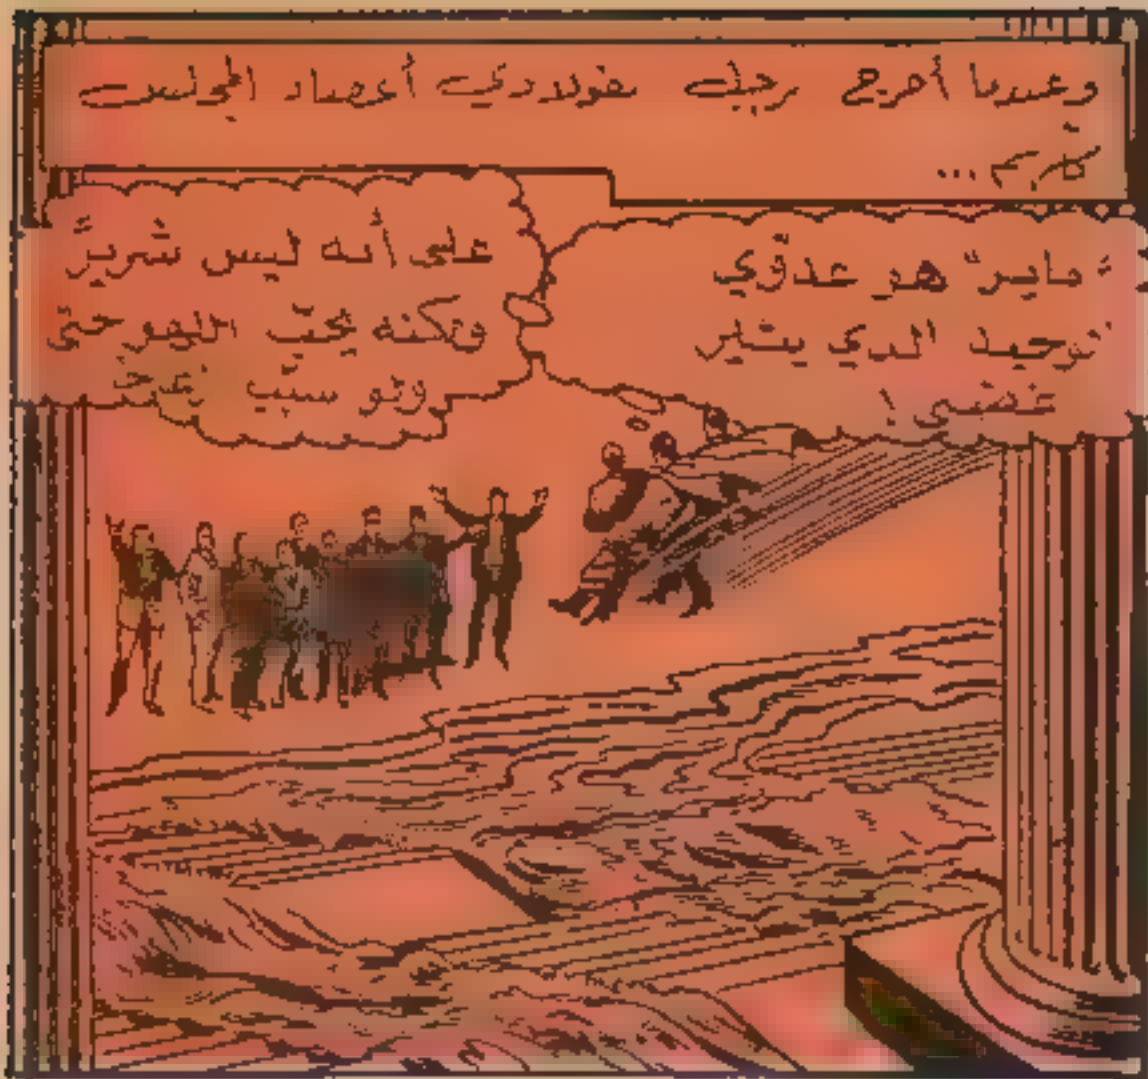 وعندما أخرج رجل فولاذي أعضاء المجلس
كلهم ...
"ماير" هو عدوّي
الوحيد الذي يثير
غضبي !
على أنه ليس شريرً
ولكنه يحبّ اللهو حتى
ولو سبّب